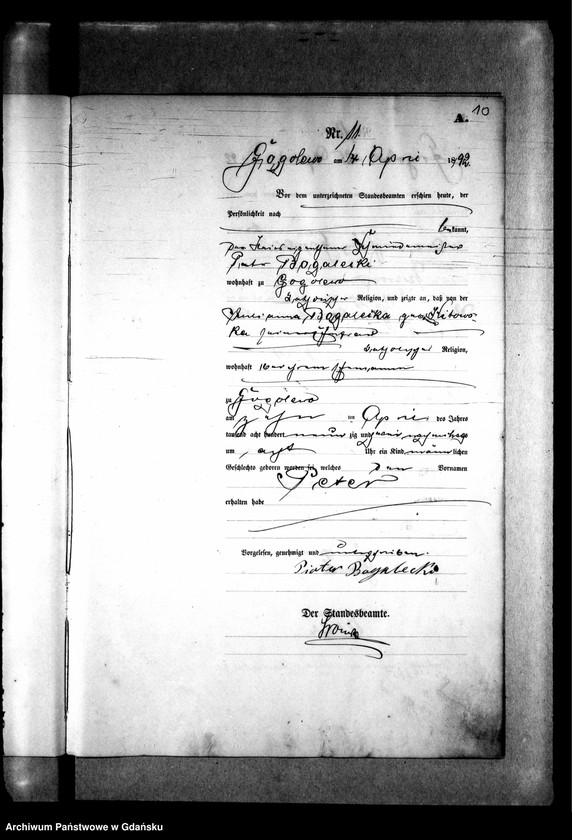 10
A.
Nr. 11.
Gogolewo am 14 April 1892.
Vor dem unterzeichneten Standesbeamten erschien heute, der
Persönlichkeit nach
bekannt,
der
Piotr Bogalecki
wohnhaft zu Gogolewo
katholischer Religion, und zeigte an, daß von der
Julianna Bogalecka geb. Kitows-
ka seiner Ehefrau
katholischer Religion,
wohnhaft bei ihrem Ehemann
zu Gogolewo
am zehn ten April des Jahres
tausend acht hundert neun zig und zwei nachmittags
um acht Uhr ein Kind männlichen
Geschlechts geboren worden sei, welches den Vornamen
Peter
erhalten habe
Vorgelesen, genehmigt und unterschrieben.
Piotr Bogalecki
Der Standesbeamte.
Archiwum Państwowe w Gdańsku